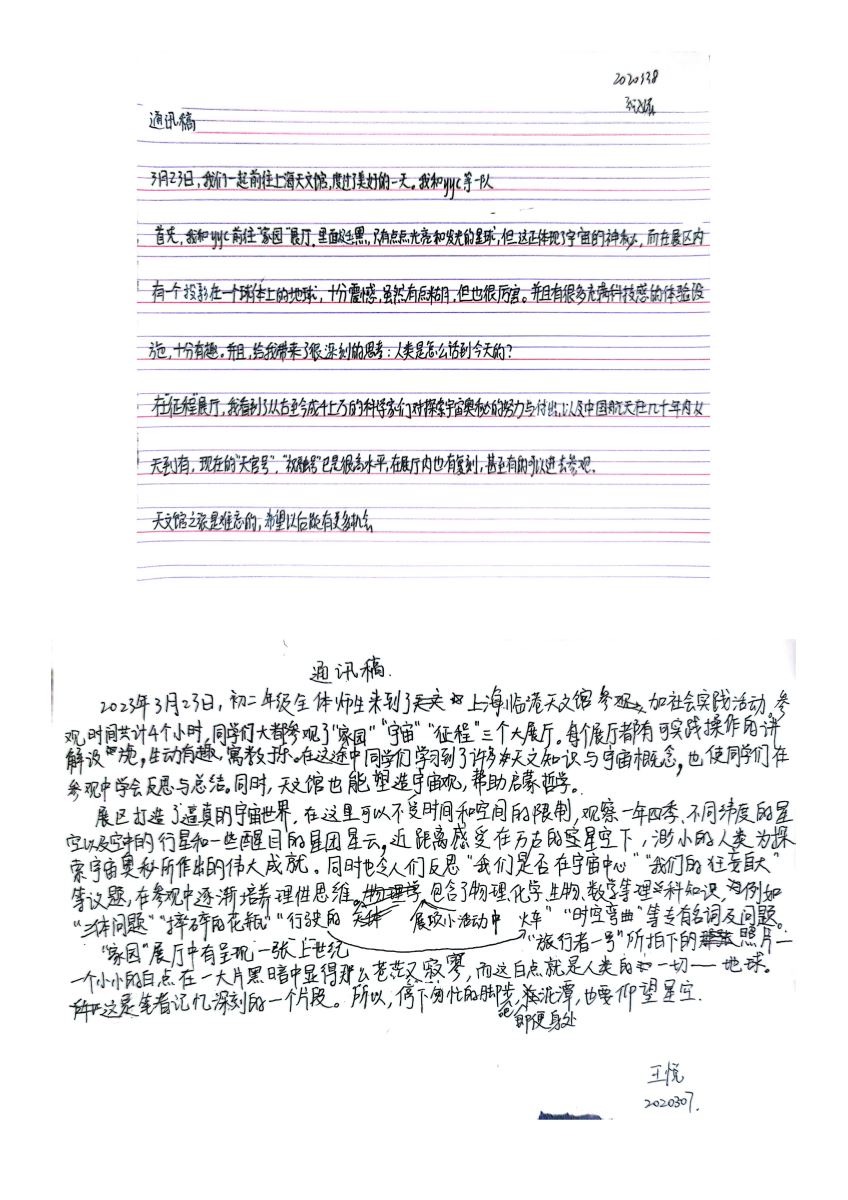 2020138
通讯稿
3月23日,我们一起前往上海天文馆,度过了美好的一天。我和yyc等一队
首先,我和yyc前往"家园"展厅,里面漆黑,只有点点光亮和发光的星球,但这正体现了宇宙的神秘,而在展区内
有一个投影在一个球体上的地球,十分震憾,虽然有点糊,但也很厉害。并且有很多充满科技感的体验设
施,十分有趣。并且,给我带来了很深刻的思考:人类是怎么活到今天的?
在"征程"展厅,我看到了从古至今成千上万的科学家们对探索宇宙奥秘的努力与付出,以及中国航天在几十年内从
无到有,现在的"天宫号","祝融号"已是很高水平,在展厅内也有复刻,甚至有的可以进去参观.
天文馆之旅是难忘的,希望以后能有更多机会
通讯稿.
2023年3月23日,初二年级全体师生来到了上海临港天文馆参加社会实践活动,参
观时间共计4个小时,同学们大都参观了"家园""宇宙""征程"三个大展厅。每个展厅都有可实践操作的讲
解设施,生动有趣,寓教于乐。在这途中同学们学习到了许多天文知识与宇宙概念,也使同学们在
参观中学会反思与总结。同时,天文馆也能塑造宇宙观,帮助启蒙哲学。
展区打造了逼真的宇宙世界,在这里可以不受时间和空间的限制,观察一年四季、不同纬度的星
空以及空中的行星和一些醒目的星团星云。近距离感受在万古的星空下,渺小的人类为探
索宇宙奥秘所作出的伟大成就。同时也令人们反思"我们是否在宇宙中心""我们的狂妄自大"
等议题,在参观中逐渐培养理性思维。展项小活动中包含了物理、化学、生物、数学等理科知识,例如
"三体问题""摔碎的花瓶""行驶的火车""时空弯曲"等专有名词及问题。
"家园"展厅中有呈现一张上世纪"旅行者一号"所拍下的照片—
一个小小的白点在一大片黑暗中显得那么苍茫又寂寥,而这白点就是人类的一切——地球。
这是笔者记忆深刻的一个片段。所以,停下匆忙的脚步吧,即便身处泥潭,也要仰望星空.
王悦
2020307.